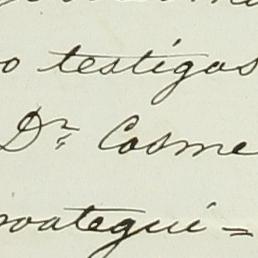 o testigos
Dr. Cosme
oategui=